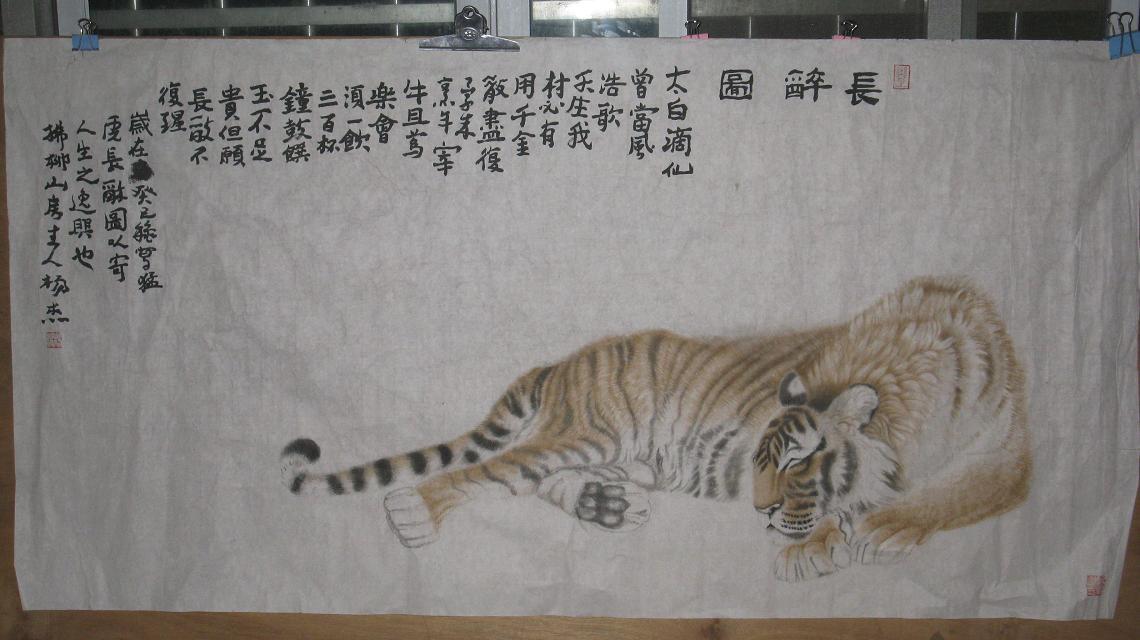 長醉圖
太白滴仙
曾當風
浩歌
天生我
材必有
用千金
散盡復
烹羊宰
牛且為
樂會
湏一飲
三百杯
鐘鼓饌
玉不足
貴但願
長醉不
復醒
歲在癸巳寫猛
虎長醉圖以寄
人生之逸興也
拂柳山房主人楊杰